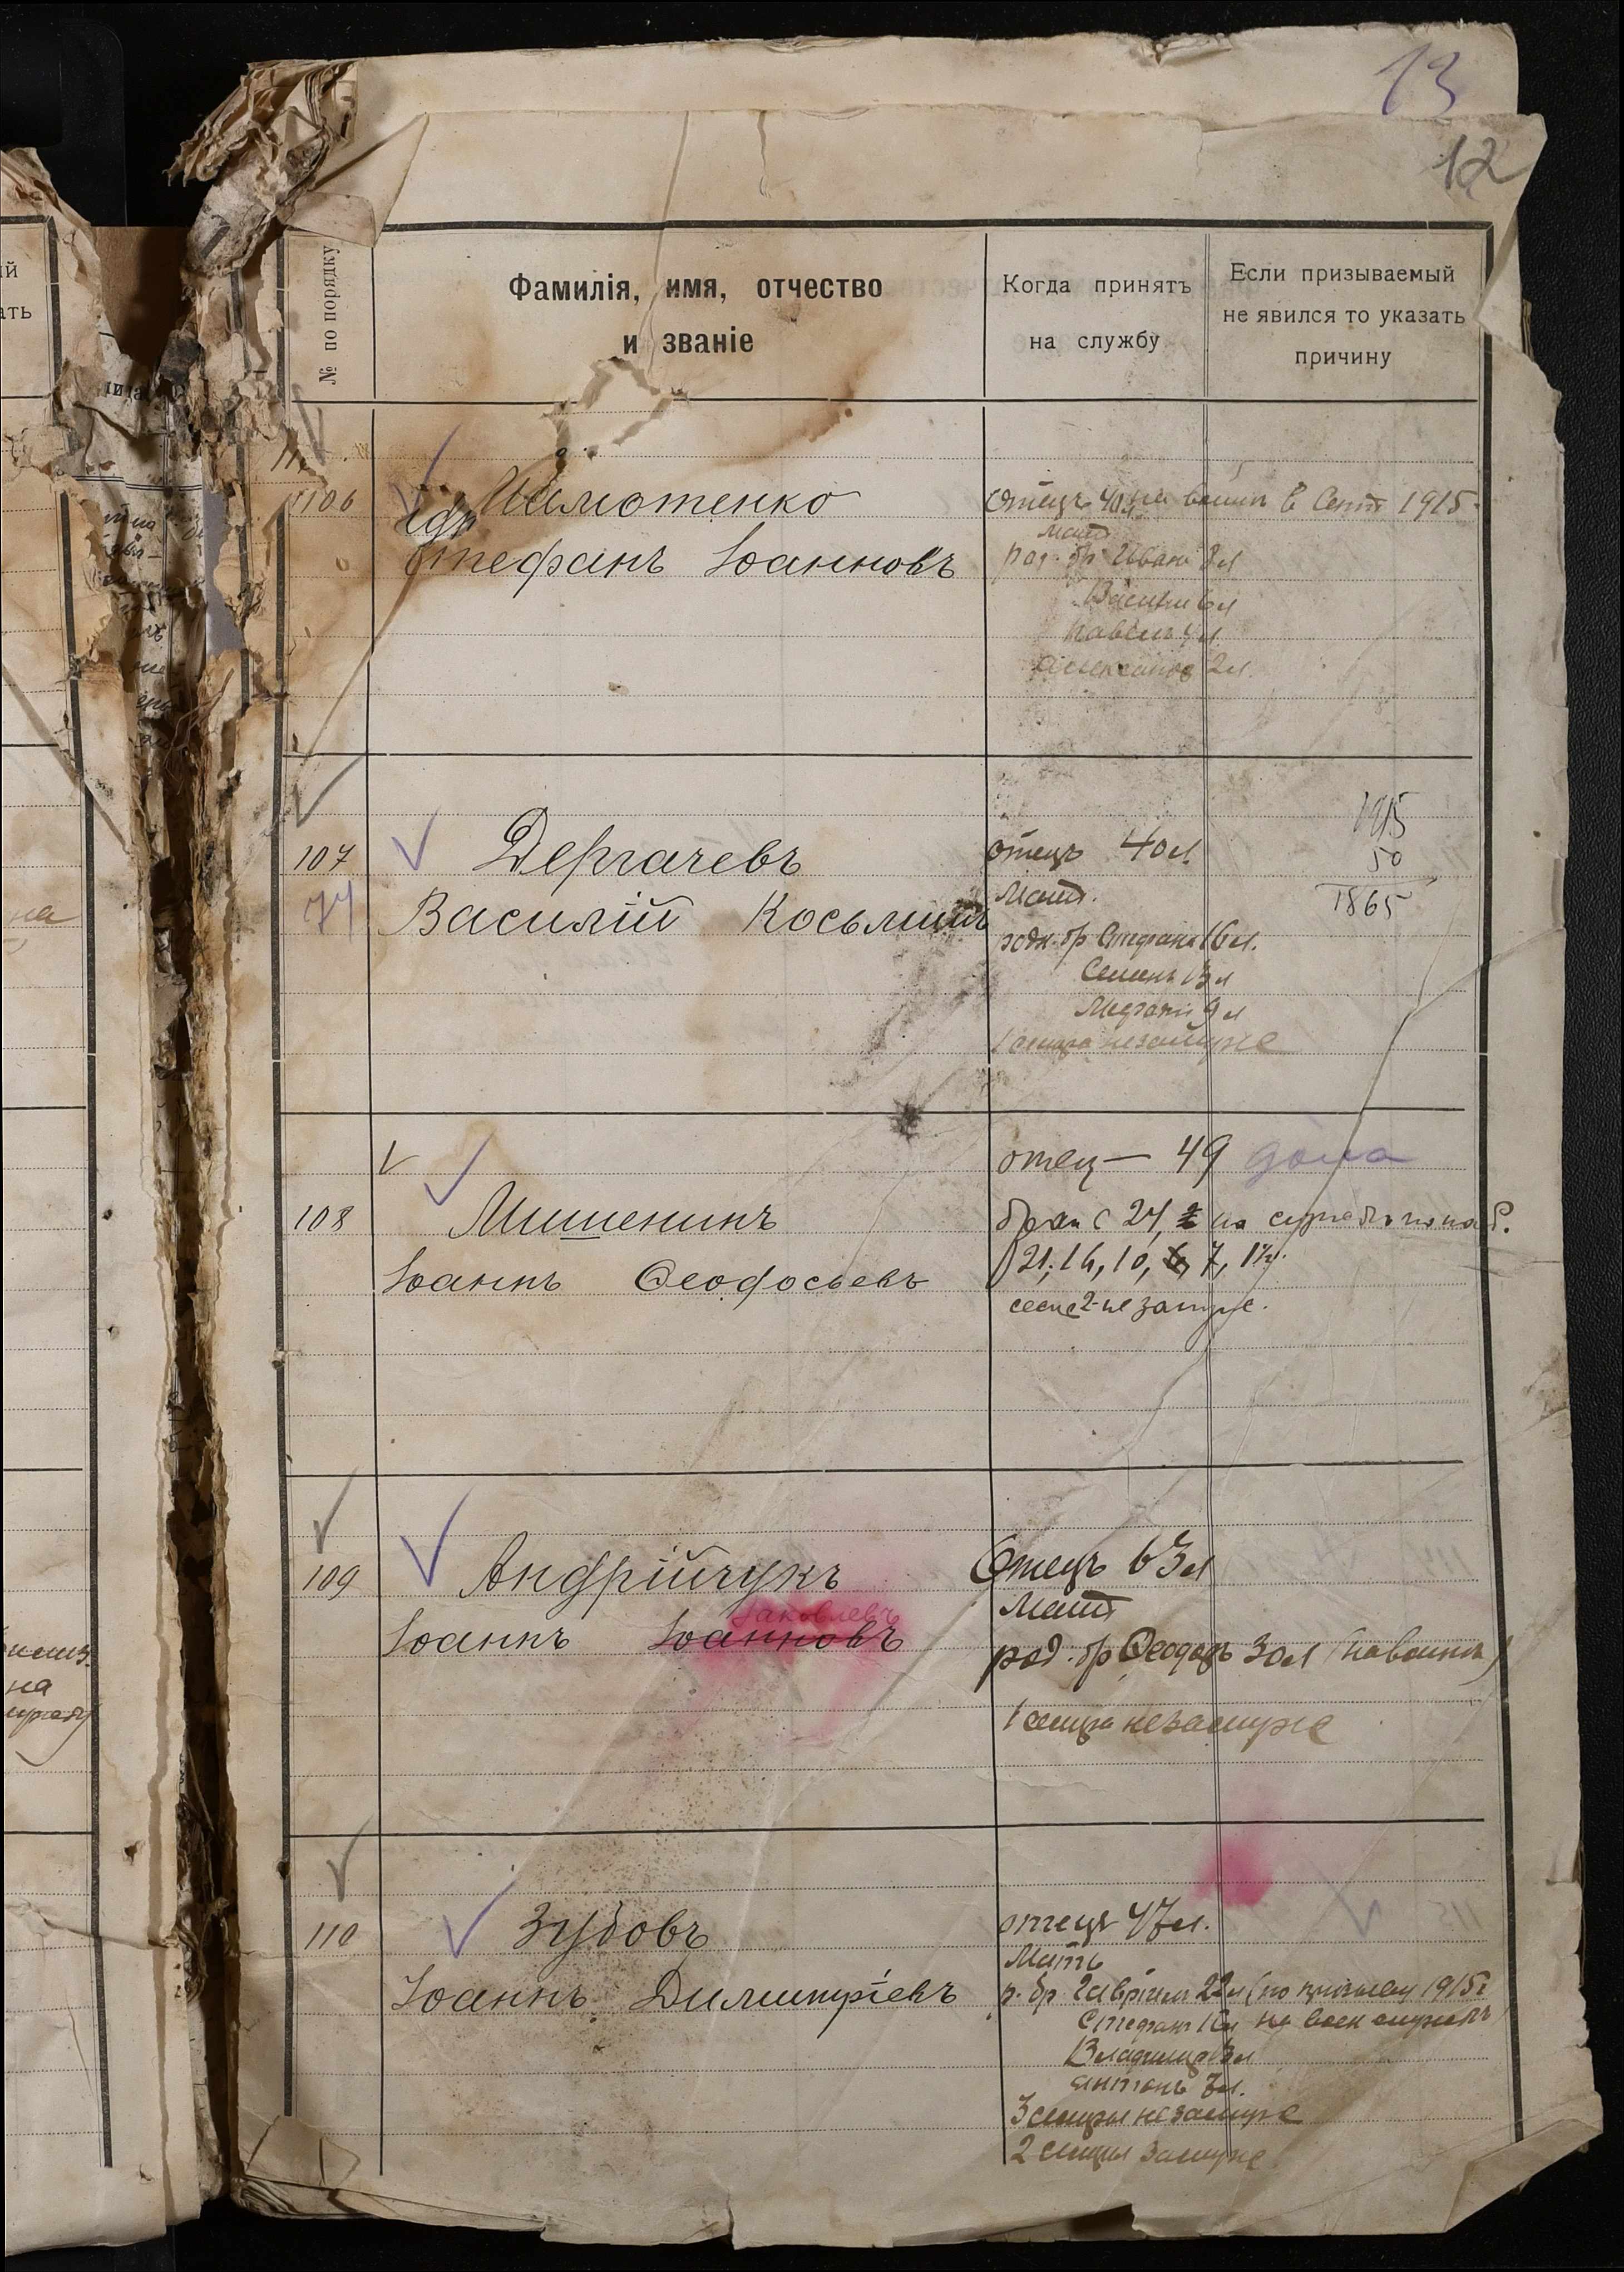 13
12
№ по порядку
Фамилія, имя, отчество
и званіе
Когда принятъ
на службу
Если призываемый
не явился то указать
причину
106
Стефанъ Іоанновъ
отецъ 40 л на войнѣ в Сент 1915
мать
род. бр Иванъ 8 л
Василій 6 л
Павелъ 4 л
Александръ 2 л.
107
74
Дергачевъ
Василій Косьминъ
отецъ 40 л
мать.
родн. бр Стефанъ 16 л.
Семенъ 13 л
9 л
1 сестра незамуже
1915
50
1865
108
Мишенинъ
Іоаннъ Ѳеодосьевъ
отец — 49 дома
21, 16, 10, 7, 1½.
2 незамуже.
109
Андрійчукъ
Іаковлевъ
Іоаннъ Іоанновъ
Отецъ 63 л
мать
род. бр Ѳеодоръ 30 л (на войнѣ)
1 сестра незамуже
110
Зубовъ
Іоаннъ Димитріевъ
отецъ 47 л.
Мать
р. бр. Гавріилъ 22 л (по призыву 1915 г
Стефанъ 16 л на воен службѣ)
Владиміръ 13 л
Антонъ 7 л.
3 сестры незамуже
2 сестры замуже